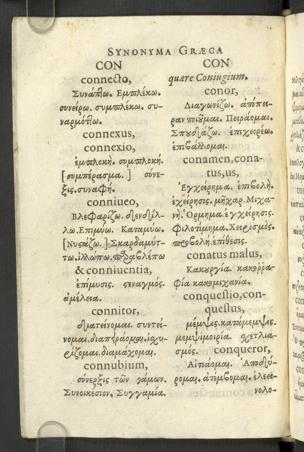 SYNONYMA GRÆCA
CON
connecto,
Συνάπτω. Εμπλέκω.
συνείρω. συμπλέκω. συ-
ναρμόττω.
connexus,
connexio,
ἐμπλοκή. συμπλοκή.
[συμπέρασμα.] σύνε-
ξις. συναφή.
conniueo,
Βλεφαρίζω.
λω. Επιμύω. Καταμύω.
[Νυστάζω.] Σκαρδαμύτ-
τω. ἰλλωπῶ. παραβλέπω
& conniuentia,
ἐπίμυσις. στεναγμός.
ἀμέλεια.
connitor,
διατείνομαι. συντεί-
νομαι. διαπεράομαι. ἰσχυ-
ρίζομαι. διαμάχομαι.
connubium,
σύνερξις τῶν γάμων.
Συνοικέσιον. Συγγαμία.
CON
quare Coniugium.
conor,
Διαγωνίζω. ἀπόπει-
ραν ποιοῦμαι. Πειράομαι.
Σπουδάζω. ἐπιχειρέω.
ἐπιβάλλομαι.
conamen, cona-
tus, us,
Ἐγχείρημα. ἐπιβολή.
ἐχείρησις. μηχαρ. Μηχα-
νή. Ορμημα. ἐγχείρησις.
Φιλοτίμημα. Χειρισμός.
προσβολή. ἐπίθεσις.
conatus malus,
Κακυργία. κακορρα-
φία κακομηχανία.
conquestio, con-
questus,
μέμψις. κατάμεμψις.
μεμψιμοιρία. σχετλια-
σμός. conqueror,
Αἰτιάομαι. Αποδύ-
ρομαι. ἀτιμβομαι. ἐλεει-
νολο-